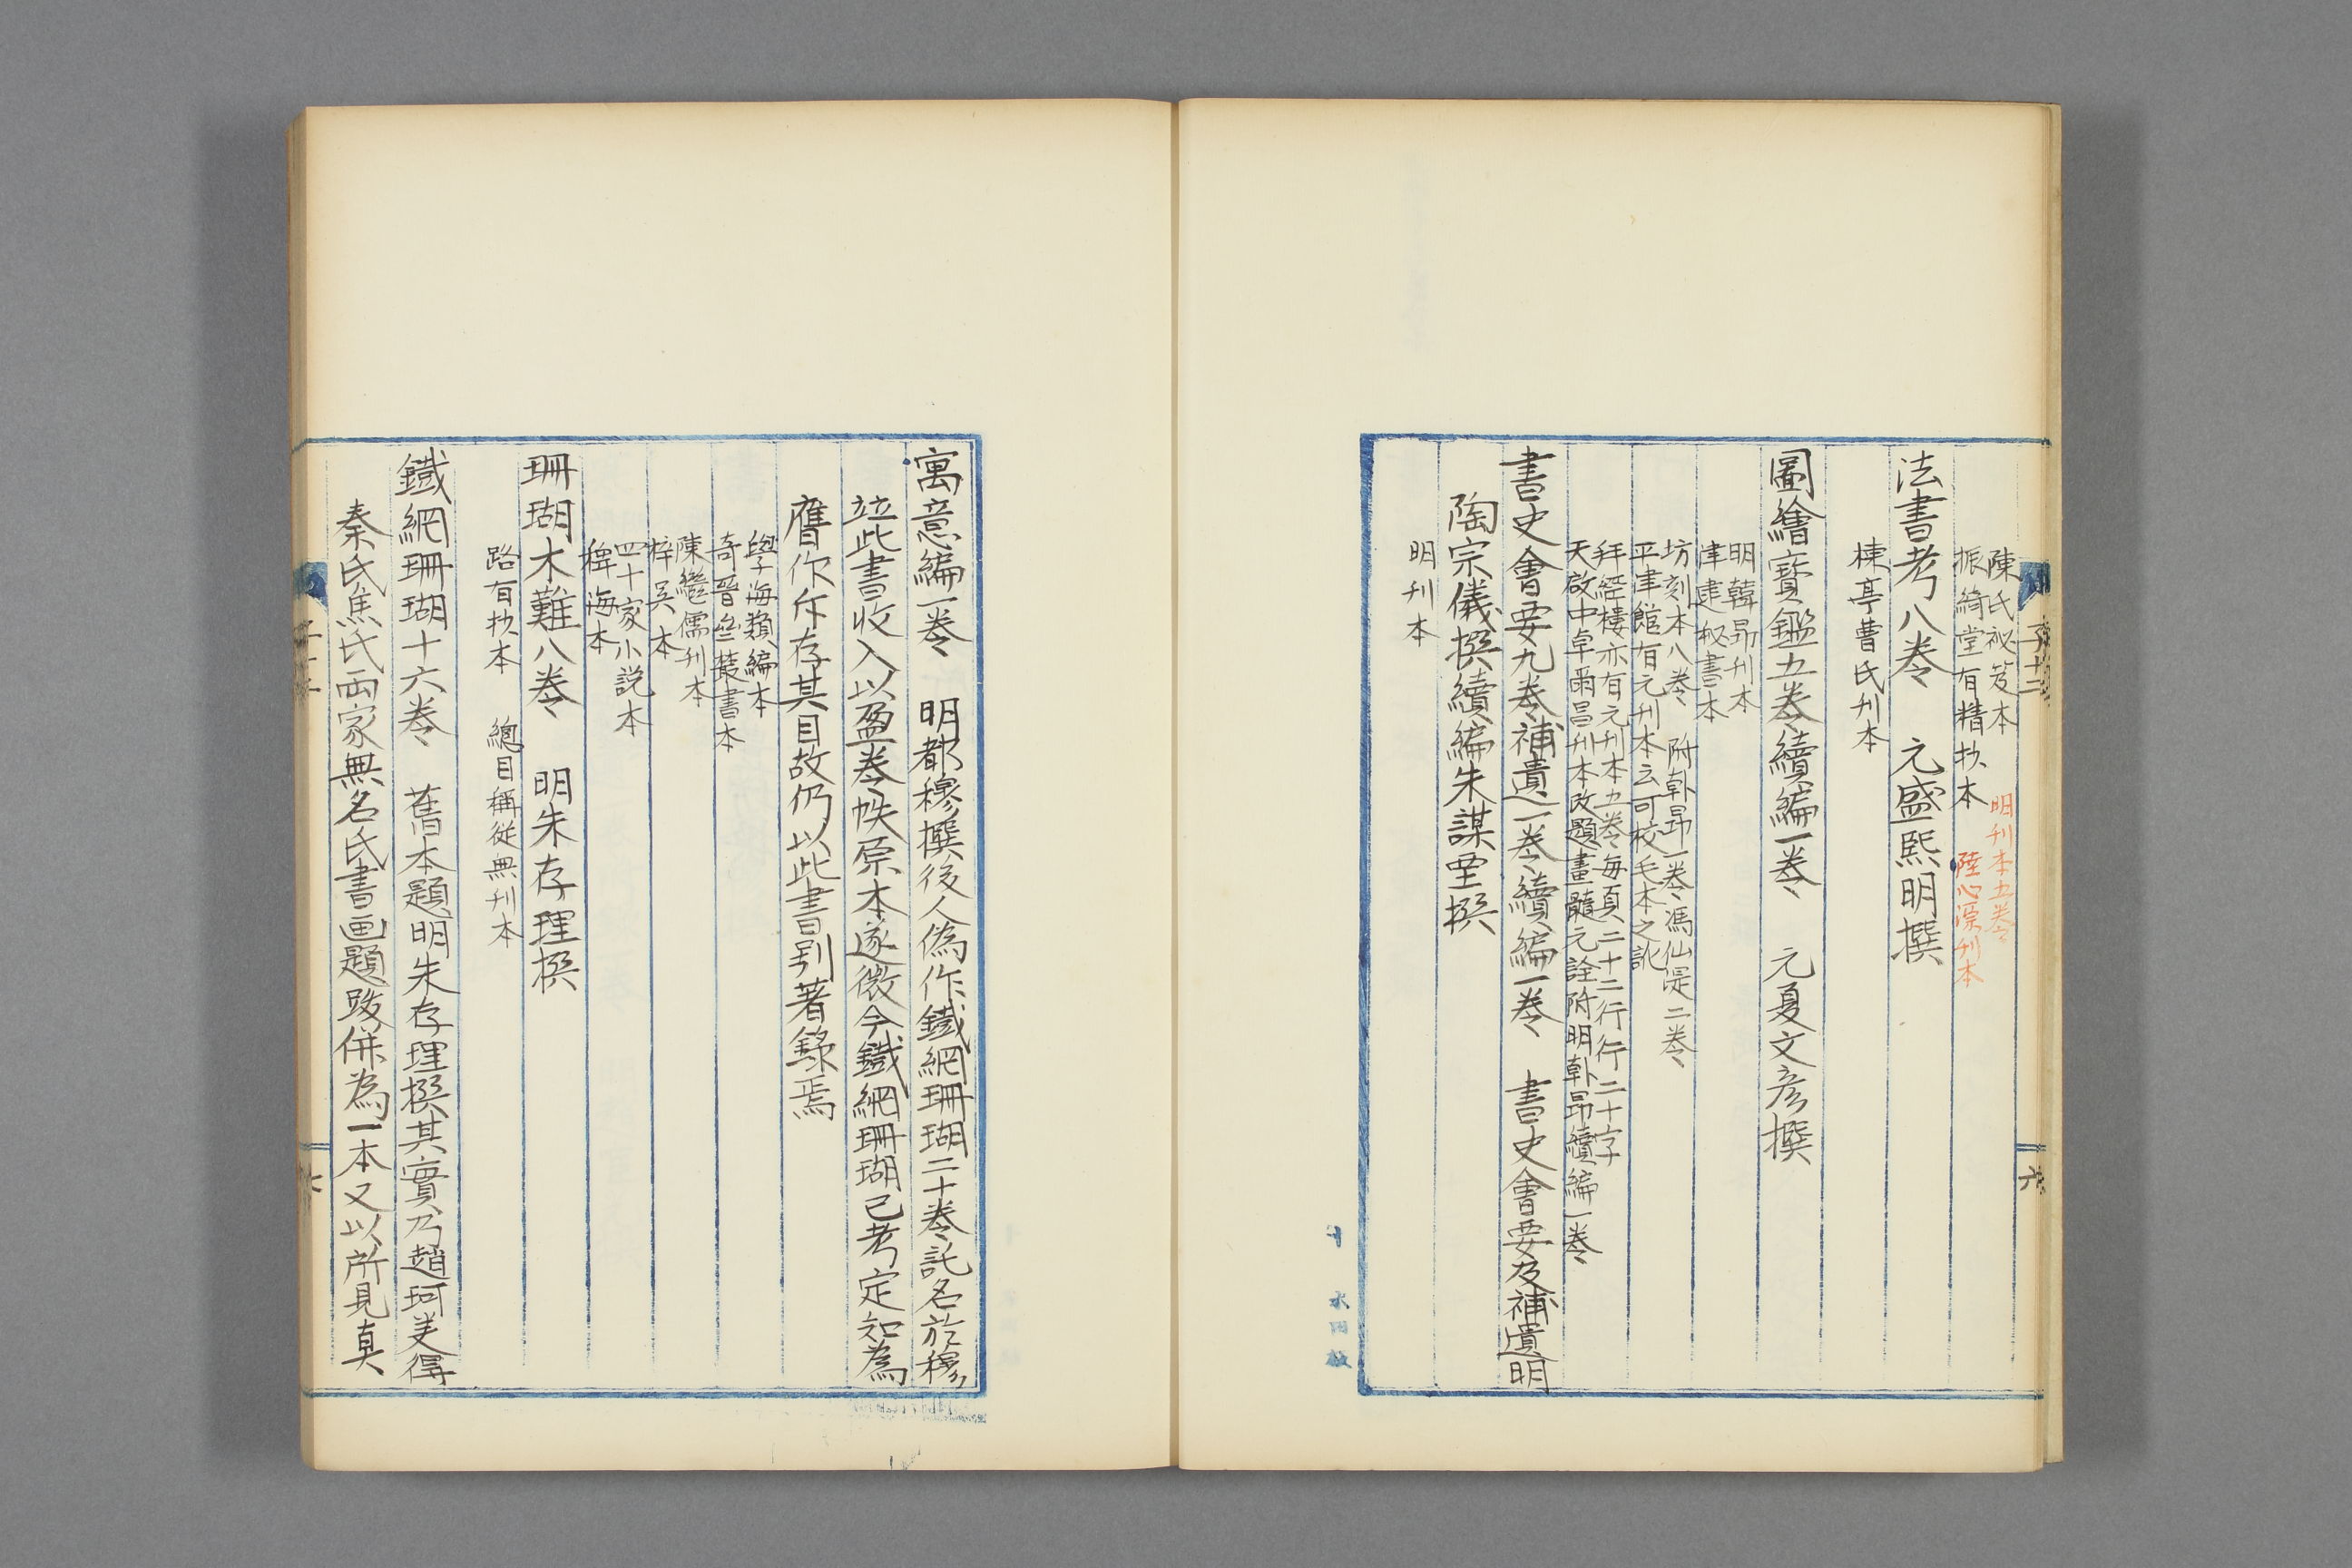 陳氏祕笈本　明刊本五卷
振綺堂有精抄本　陸心源刊本
法書考八卷　元盛熙明撰
棟亭曹氏刊本
圖繪寶鑑五卷續編一卷　元夏文彥撰
明韓昂刊本
津逮祕書本
坊刻本八卷　附韓昂一卷馮仙湜二卷
平津館有元刊本云可校毛本之訛
拜經樓亦有元刊本五卷每頁二十二行行二十字
天啟中卓爾昌刊本改題畫髓元詮附明韓昂續編一卷
書史會要九卷補遺一卷續編一卷　書史會要及補遺明
陶宗儀撰續編朱謀垔撰
明刊本
子十二
六
寓意編一卷　明都穆撰後人偽作鐵網珊瑚二十卷託名於穆
竝此書收入以盈卷帙原本遂微今鐵網珊瑚已考定知為
贋作斥存其目故仍以此書别著錄焉
學海類編本
奇晋𠫵叢書本
陳繼儒刊本
梓吳本
四十家小說本
稗海本
珊瑚木難八卷　明朱存理撰
路有抄本　總目稱從無刊本
鐵網珊瑚十六卷　舊本題明朱存理撰其實乃趙珂美得
秦氏焦氏兩家無名氏書画題跋併為一本又以所見真